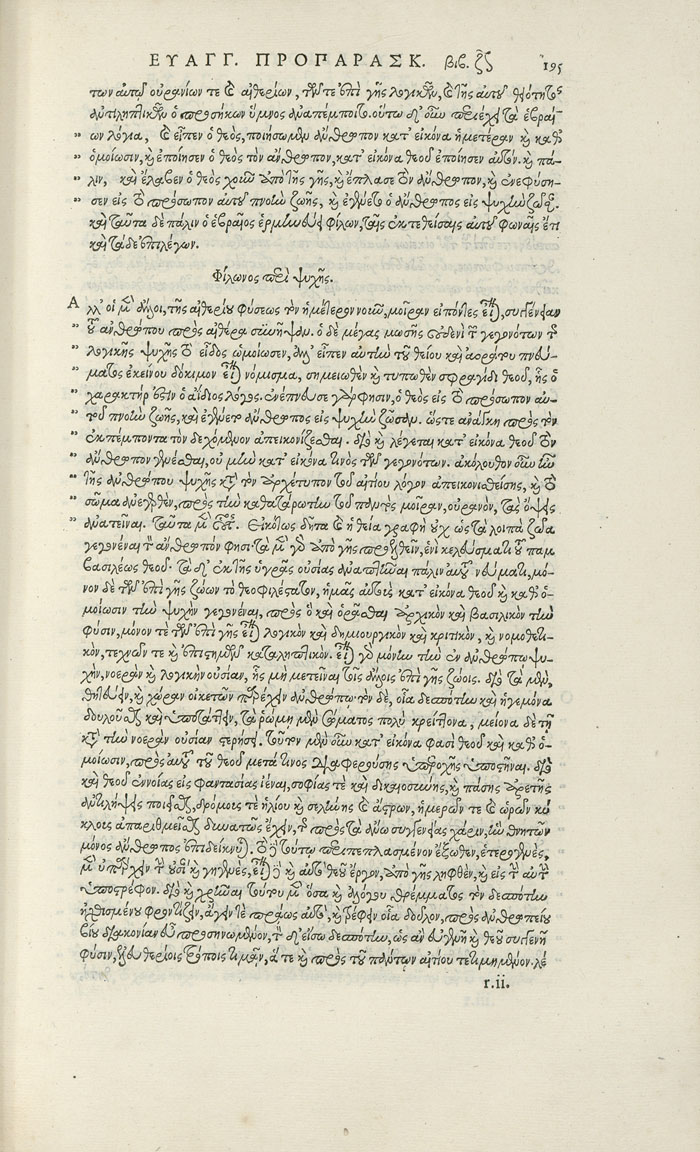 ΕΥΑΓΓ. ΠΡΟΠΑΡΑΣΚ. βιβ. ζ 195
των αὐτοῦ οὐρανίων τε καὶ αἰθερίων, τῶν τε ἐπὶ γῆς λογικῶν, καὶ τῆς αὐτοῦ θεότητος
ἀντιληπτικῶν ὁ προσήκων ὕμνος ἀναπέμποιτο. οὕτω δ' οὖν περιέχει τὰ ἑβραί-
ων λόγια, καὶ εἶπεν ὁ θεὸς, ποιήσωμεν ἄνθρωπον κατ' εἰκόνα ἡμετέραν ϗ καθ'
ὁμοίωσιν, ϗ ἐποίησεν ὁ θεὸς τὸν ἄνθρωπον, κατ' εἰκόνα θεοῦ ἐποίησεν αὐτόν. ϗ πά-
λιν, καὶ ἔλαβεν ὁ θεὸς χοῦν ἀπὸ τῆς γῆς, ϗ ἔπλασε τὸν ἄνθρωπον, ϗ ἐνεφύση-
σεν εἰς τὸ πρόσωπον αὐτοῦ πνοὴν ζωῆς, ϗ ἐγένετο ὁ ἄνθρωπος εἰς ψυχὴν ζῶσαν.
καὶ ταῦτα δὲ πάλιν ὁ ἑβραῖος ἑρμηνεύει φίλων, ταῖς ἐκτεθείσαις αὐτοῦ φωναῖς ἔτι
καὶ τάδε ἐπιλέγων.
Φίλωνος περὶ ψυχῆς.
Αλλ' οἱ μὲν ἄλλοι, τῆς αἰθερίου φύσεως τὸν ἡμέτερον νοῦν, μοῖραν εἰπόντες εἶναι, συγγένειαν
τοῦ ἀνθρώπου πρὸς αἰθέρα συνῆψαν. ὁ δὲ μέγας μωσῆς οὐδενὶ τῶν γεγονότων τῆς
λογικῆς ψυχῆς τὸ εἶδος ὡμοίωσεν, ἀλλ' εἶπεν αὐτὴν τοῦ θείου καὶ ἀοράτου πνεύ-
ματος ἐκείνου δόκιμον εἶναι νόμισμα, σημειωθὲν ϗ τυπωθὲν σφραγῖδι θεοῦ, ἧς ὁ
χαρακτήρ ἐστιν ὁ ἀΐδιος λόγος. ἐνέπνευσε γάρ φησιν, ὁ θεὸς εἰς τὸ πρόσωπον αὐ-
τοῦ πνοὴν ζωῆς, καὶ ἐγένετο ἄνθρωπος εἰς ψυχὴν ζῶσαν. ὥστε ἀνάγκη πρὸς τὸν
ἐκπέμποντα τὸν δεχόμενον ἀπεικονίζεσθαι. διὸ ϗ λέγεται κατ' εἰκόνα θεοῦ τὸν
ἄνθρωπον γενέσθαι, οὐ μὴν κατ' εἰκόνα τινὸς τῶν γεγονότων. ἀκόλουθον οὖν ἦν
τῆς ἀνθρώπου ψυχῆς κατὰ τὸν ἀρχέτυπον τοῦ αἰτίου λόγον ἀπεικονισθείσης, ϗ τὸ
σῶμα ἀνεγερθὲν, πρὸς τὴν καθαρωτάτην τοῦ παντὸς μοῖραν, οὐρανὸν, τὰς ὄψεις
ἀνατεῖναι. ταῦτα μὲν οὗτος. Εἰκότως δῆτα καὶ ἡ θεία γραφὴ οὐχ ὡς τὰ λοιπὰ ζῶα
γεγονέναι τὸν ἄνθρωπόν φησι. τὰ μὲν γὰρ ἀπὸ γῆς προελθεῖν, ἑνὶ κελεύσματι τοῦ παμ
βασιλέως θεοῦ. τὰ δ' ἐκ τῆς ὑγρᾶς οὐσίας ἀναπτῆναι πάλιν αὐτοῦ νεύματι, μό-
νον δὲ τῶν ἐπὶ γῆς ζώων τὸ θεοφιλέστατον, ἡμᾶς αὐτοὺς κατ' εἰκόνα θεοῦ ϗ καθ' ὁ-
μοίωσιν τὴν ψυχὴν γεγονέναι, πρὸς ὃ καὶ ὁρᾶσθαι ἀρχικὸν καὶ βασιλικὸν τὴν
φύσιν, μόνον τὲ τῶν ἐπὶ γῆς εἶναι λογικὸν καὶ δημιουργικὸν καὶ κριτικὸν, ϗ νομοθετι-
κὸν, τεχνῶν τε ϗ ἐπιστημῶν καταληπτικόν. εἶναι γὰρ μόνην τὴν ἐν ἀνθρώπω ψυ-
χὴν, νοερὰν ϗ λογικὴν οὐσίαν, ἧς μὴ μετεῖναι τοῖς ἄλλοις ἐπὶ γῆς ζώοις. διὸ τὰ μὲν,
θητεύειν, ϗ χώραν οἰκετῶν παρέχειν ἀνθρώπω. τὸν δὲ, οἷα δεσπότην καὶ ἡγεμόνα
δουλοῦσθαι καὶ ὑποτάττειν, τὰ ῥώμη μὲν σώματος πολὺ κρείττονα, μείονα δὲ τῇ
κατὰ τὴν νοερὰν οὐσίαν στερήσει. τοῦτον μὲν οὖν κατ' εἰκόνα φασὶ θεοῦ καὶ καθ' ὁ-
μοίωσιν, πρὸς αὐτοῦ τοῦ θεοῦ μετά τινος διαφερούσης ὑπεροχῆς ὑποστῆναι. διὸ
καὶ θεοῦ ἐννοίας εἰς φαντασίας ἰέναι, σοφίας τὲ καὶ δικαιοσύνης, ϗ πάσης ἀρετῆς
ἀντιλήψεις ποιεῖσθαι, δρόμους τὲ ἡλίου ϗ σελήνης καὶ ἄστρων, ἡμερῶν τε καὶ ὡρῶν κύ
κλους ἀπαριθμεῖσθαι δυνατῶς ἔχειν, τῆς πρὸς τὰ ἄνω συγγενείας χάριν, ἣν θνητῶν
μόνος ἄνθρωπος ἐπιδείκνυται. τὸ δὲ τούτω περιπεπλασμένον ἔξωθεν, ἑτερογενὲς,
μὲν ὑπάρχειν τῆς οὐσίας ϗ γηγενὲς, εἶναι δὲ ϗ αὐτὸ θεοῦ ἔργον, ἀπὸ γῆς ληφθὲν, ϗ εἰς τὴν αὐτὴν
ὑποστρέφον. διὸ ϗ χρῆναι τούτου μὲν ὅσα ϗ ἀλόγου θρέμματος τὸν δεσπότην
ᾐσθημένου φροντίζειν, ἄγειν τὲ πράως αὐτὸ, ϗ τρέφειν οἷα δοῦλον, πρὸς ἀνθρωπείου
βίου διακονίαν τοῦ προσηνωμένον, τὸν δ' εἴσω δεσπότην, ὡς ἂν εὐγενῆ ϗ θεοῦ συγγενῆ
φύσιν, ἐλευθερίοις τρόποις τιμᾶν, ἅ τε ϗ πρὸς τοῦ πάντων αἰτίου τετιμημένον. λέ
r.ii.